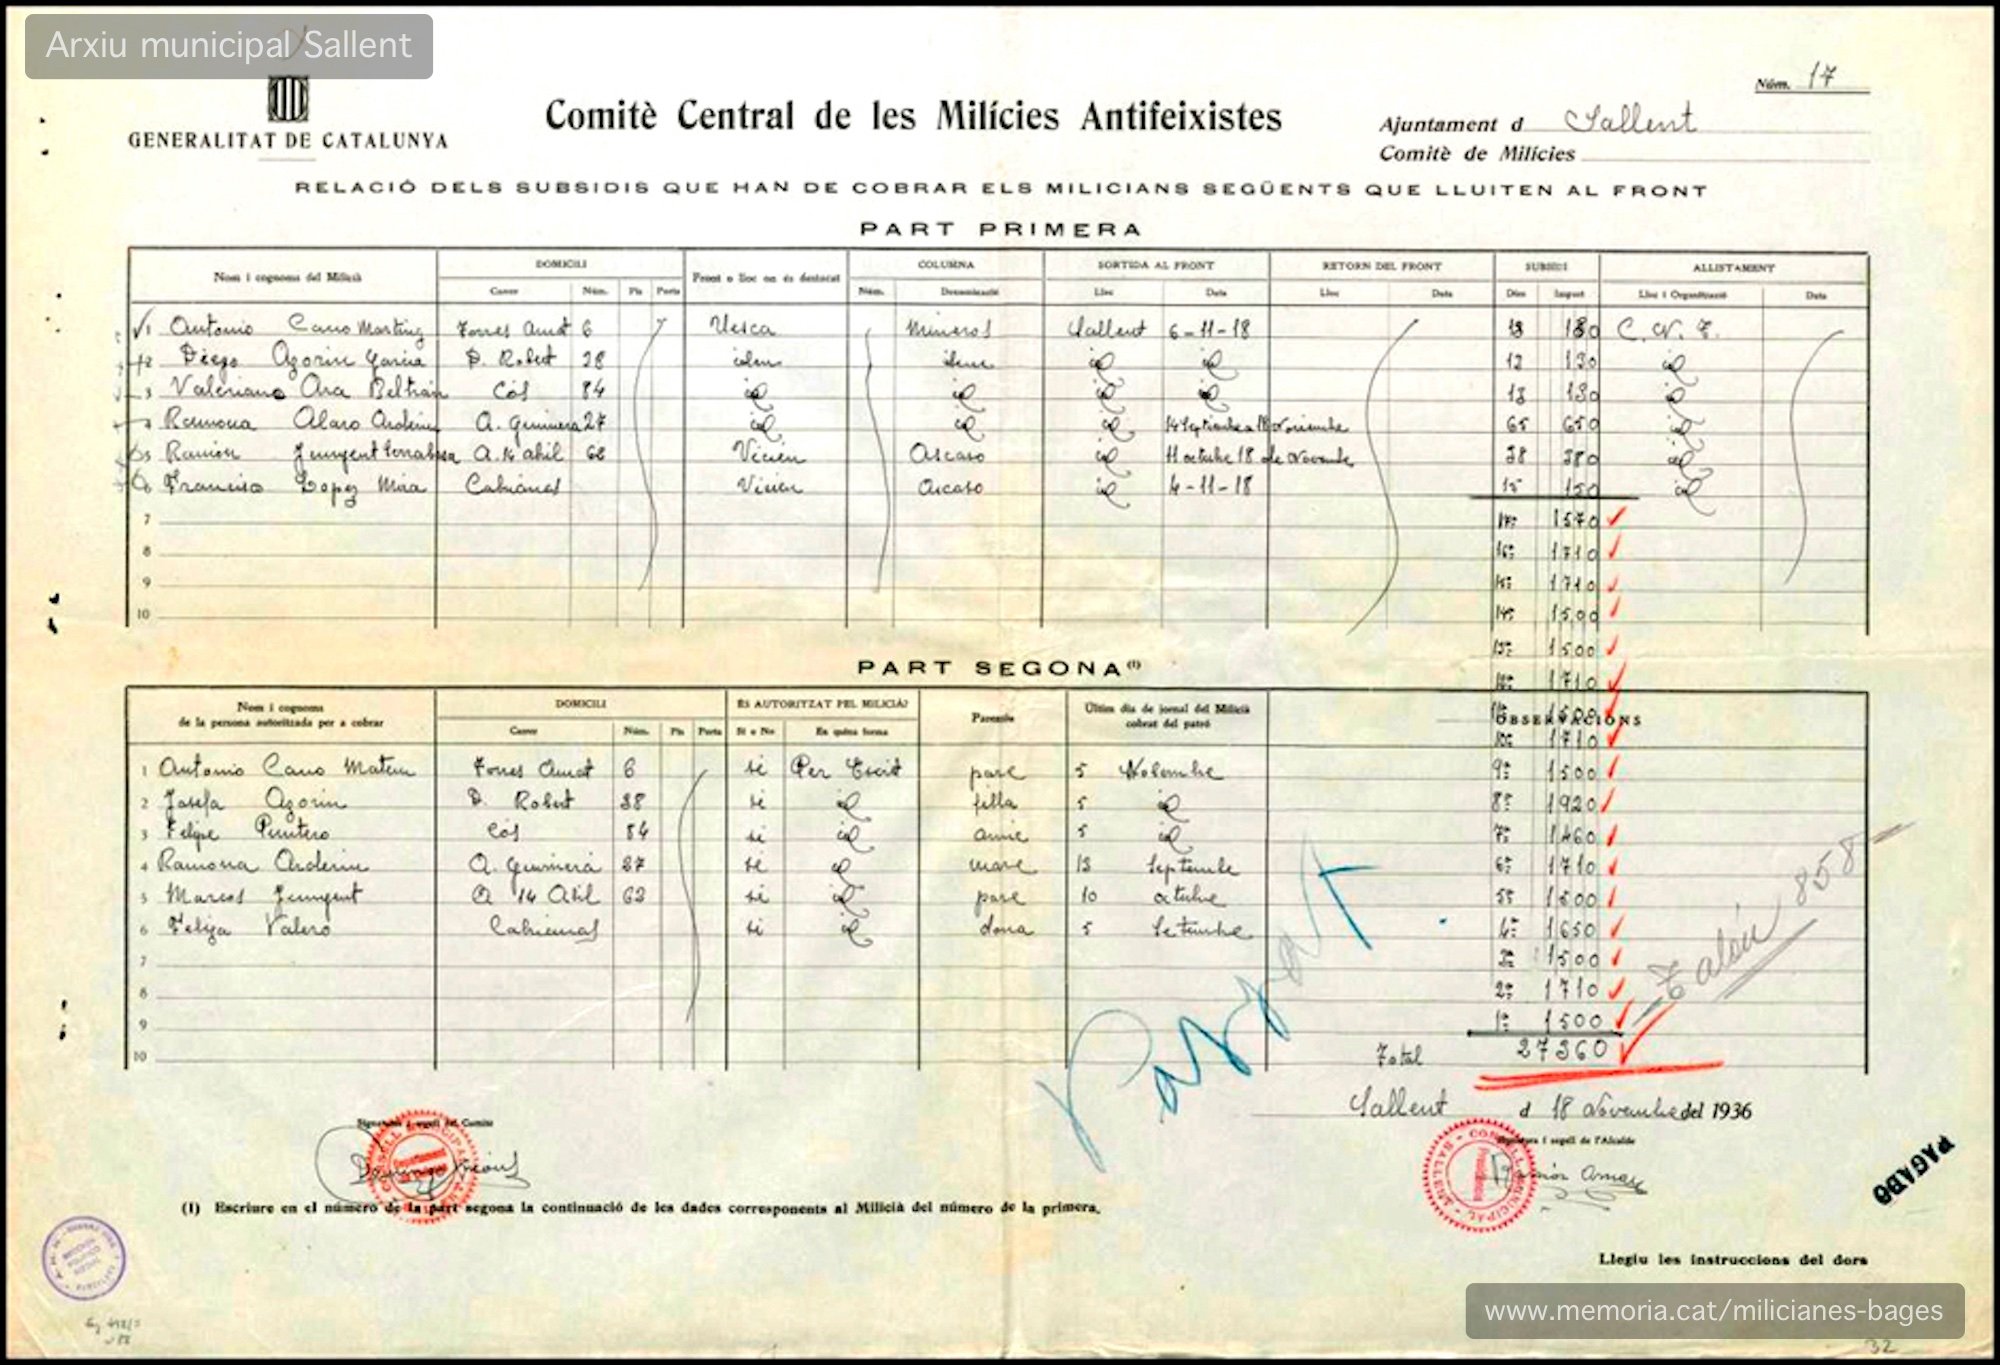 Arxiu municipal Sallent
GENERALITAT DE CATALUNYA
Comitè Central de les Milícies Antifeixistes
Núm. 17
Ajuntament d Sallent
Comitè de Milícies
RELACIÓ DELS SUBSIDIS QUE HAN DE COBRAR ELS MILICIANS SEGÜENTS QUE LLUITEN AL FRONT
PART PRIMERA
Nom i cognoms del Milicià DOMICILI Front o lloc on és destacat COLUMNA SORTIDA AL FRONT RETORN DEL FRONT SUBSIDI ALLISTAMENT
Carrer Núm. Pis Porta Núm. Denominació Lloc Data Lloc Data Dies Import Lloc i Organització Data
1 Antonio Cano Martinz Torres Amat 6 Uesca Mineros Sallent 6-11-18 13 130 C. N. T.
2 Diego Azorin Garcia D. Robert 28 idem idem id id 13 130 id
3 Valeriano Ara Beltran Cós 84 id id id id 13 130 id
4 Ramona Alaro Arderiu A. Guimera 27 id id id 14 Septiembre a 18 Noviembre 65 650 id
5 Ramon Junyent A. 14 abril 62 Vicien Ascaso id 11 octubre 18 de Novembre 38 380 id
6 Francisco Lopez Mira Cabrianas Vicien Ascaso id 4-11-18 15 150 id
7 17ª 1570
8 16ª 1710
9 15ª 1710
10 14ª 1500
13ª 1500
12ª 1710
PART SEGONA (1)
Nom i cognoms de la persona autoritzada per a cobrar DOMICILI ÉS AUTORITZAT PEL MILICIÀ? Parentiu Últim dia de jornal del Milicià cobrat del patró OBSERVACIONS
11ª 1500
Carrer Núm. Pis Porta Sí o No En quina forma
10ª 1710
1 Antonio Cano Torres Amat 6 si Per Escrit pare 5 Nobembre 9ª 1500
2 Josefa Azorin D. Robert 28 si id filla 5 id 8ª 1920
3 Felipe Cós 84 si id amic 5 id 7ª 1460
4 Ramona Arderiu A. Guimerá 27 si id mare 13 Septembre 6ª 1710
5 Marcos Junyent A 14 Abril 62 si id pare 10 octubre 5ª 1500
6 Feliza Valero Cabrianas si id dona 5 Setembre 4ª 1650
7 3ª 1500
8 2ª 1710
9 1ª 1500
10 Total 27360
Pagat
Talón 858
Sallent d 18 Novembre del 1936
Signatura i segell del Comitè
Signatura i segell de l'Alcalde
Ramón
PAGADO
(1) Escriure en el número de la part segona la continuació de les dades corresponents al Milicià del número de la primera.
Llegiu les instruccions del dors
www.memoria.cat/milicianes-bages
32